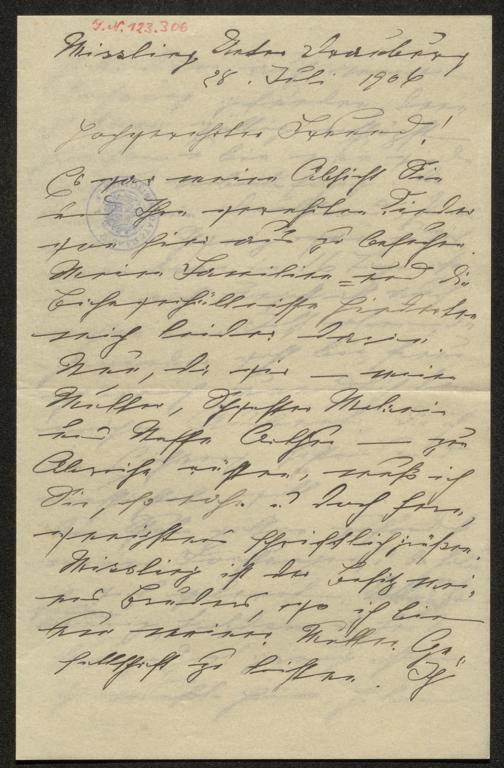 J.N. 123.306
Missling Unter Drauburg
28. Juli 1906
Hochverehrter Freund!
Es war meine Absicht Sie
und Ihre verehrten Kinder
von hier aus zu besuchen.
Meine Familien= und die
verhältnisse hinderten
mich leider daran.
Nun, da wir — meine
Mutter, Schwester
und Neffe Arthur — zur
Abreise rüsten, muß ich
Sie, so nahe u doch fern,
wenigstens schriftlich grüßen.
Missling ist der Besitz mei-
nes Bruders, wo ich bin
um meiner Mutter Ge-
sellschaft zu leisten. Ich